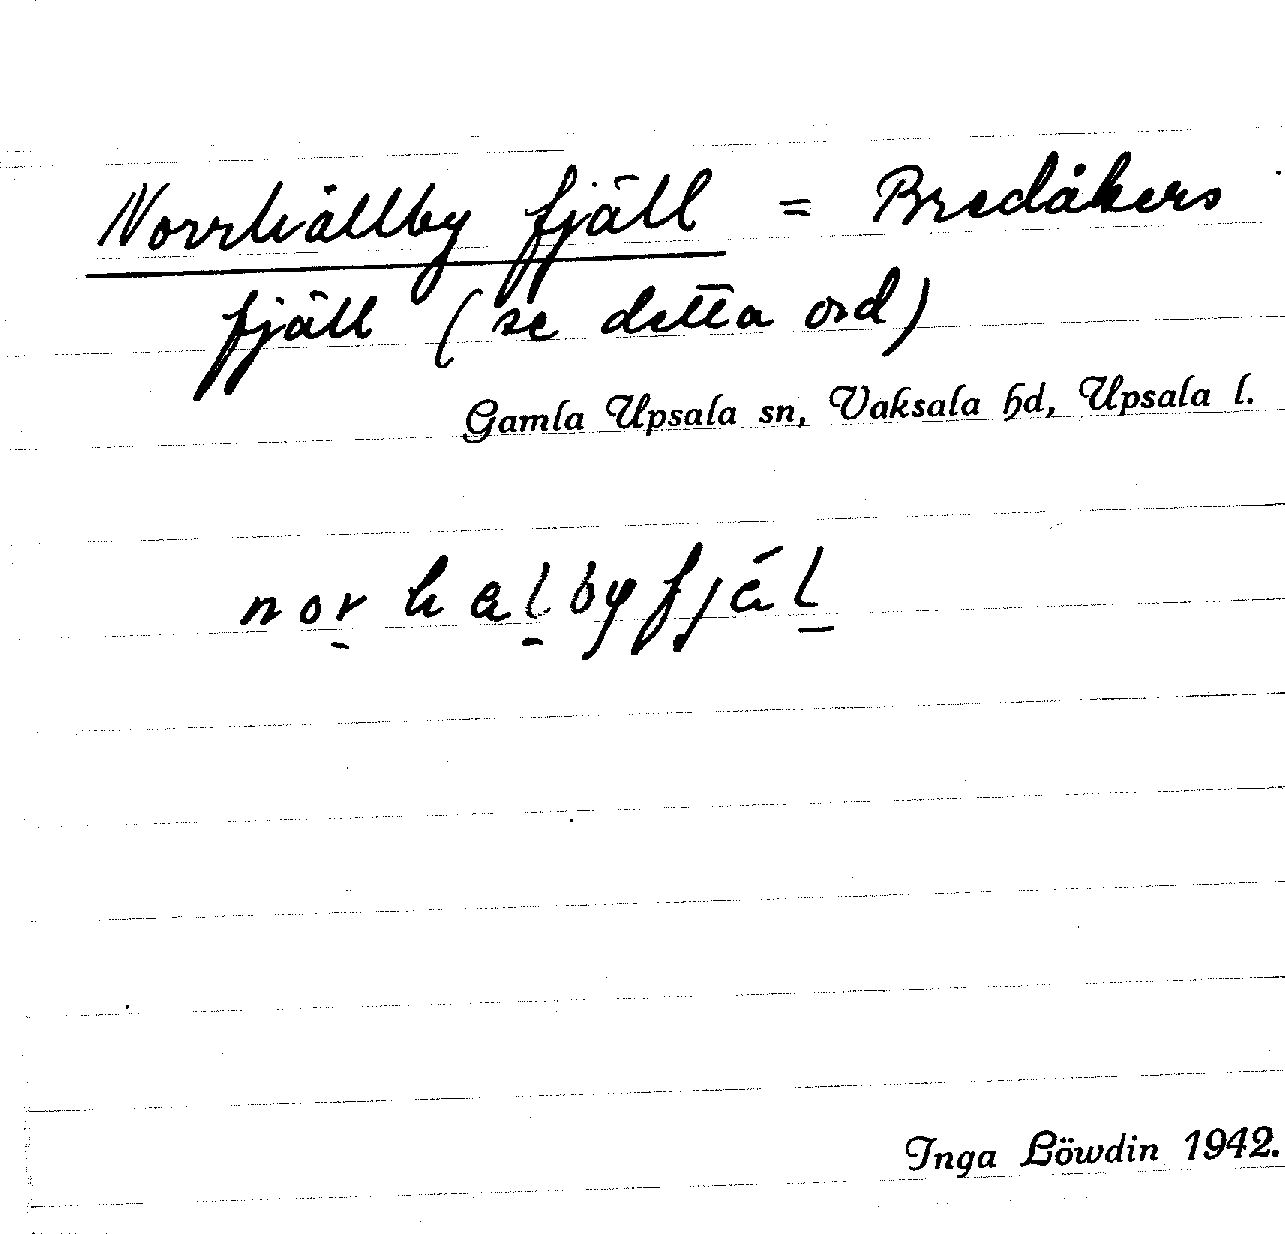 Norrhällby fjäll = Bredåkers
fjäll (se detta ord)
Gamla Upsala sn, Vaksala hd, Upsala l.
Inga Löwdin 1942.